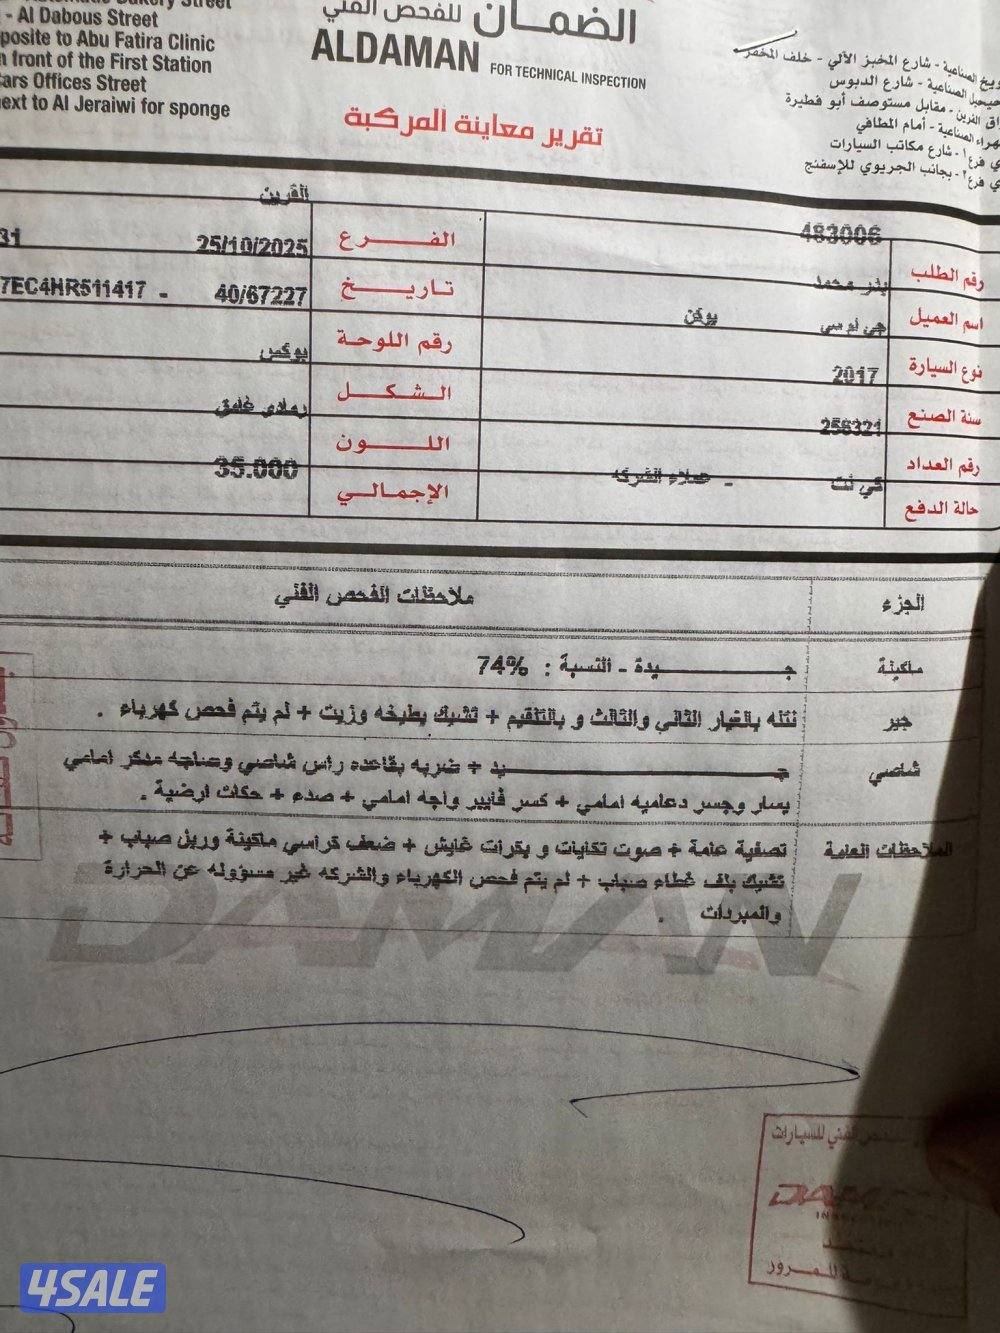 - Al Dabous Street
posite to Abu Fatira Clinic
n front of the First Station
ars Offices Street
next to Al Jeraiwi for sponge
الضمان للفحص الفني
ALDAMAN FOR TECHNICAL INSPECTION
تقرير معاينة المركبة
الصناعية - شارع المخبز الآلي - خلف المخفر
الصناعية - شارع الدبوس
القرين - مقابل مستوصف أبو فطيرة
الصناعية - أمام المطافي
فرع ١ - شارع مكاتب السيارات
فرع ٢ - بجانب الجريوي للإسفنج
رقم الطلب 483006 الفرع القرين
اسم العميل بدر محمد تاريخ 25/10/2025 31
نوع السيارة جي ام سي يوكن رقم اللوحة 40/67227 - 7EC4HR511417
سنة الصنع 2017 الشكل بوكس
رقم العداد 256321 اللون رمادي غامق
حالة الدفع كي نت - عملاء الشركه الإجمالي 35.000
الجزء ملاحظات الفحص الفني
ماكينة جيدة - النسبة : 74%
جير نتله بالغيار الثاني والثالث و بالتلقيم + تشبك بطيخه وزيت + لم يتم فحص كهرباء .
شاصي جيد + ضربه بقاعده راس شاصي وصاجه مدكر امامي
يسار وجسر دعاميه امامي + كسر فايبر واجه امامي + صدء + حكات ارضية .
الملاحظات العامة تصفية عامة + صوت تكايات و بكرات غايش + ضعف كراسي ماكينة وربل صباب +
تشبك بلف غطاء صباب + لم يتم فحص الكهرباء والشركه غير مسؤوله عن الحرارة
والمبردات .
DAMAN
الفني للسيارات
للمرور
4SALE